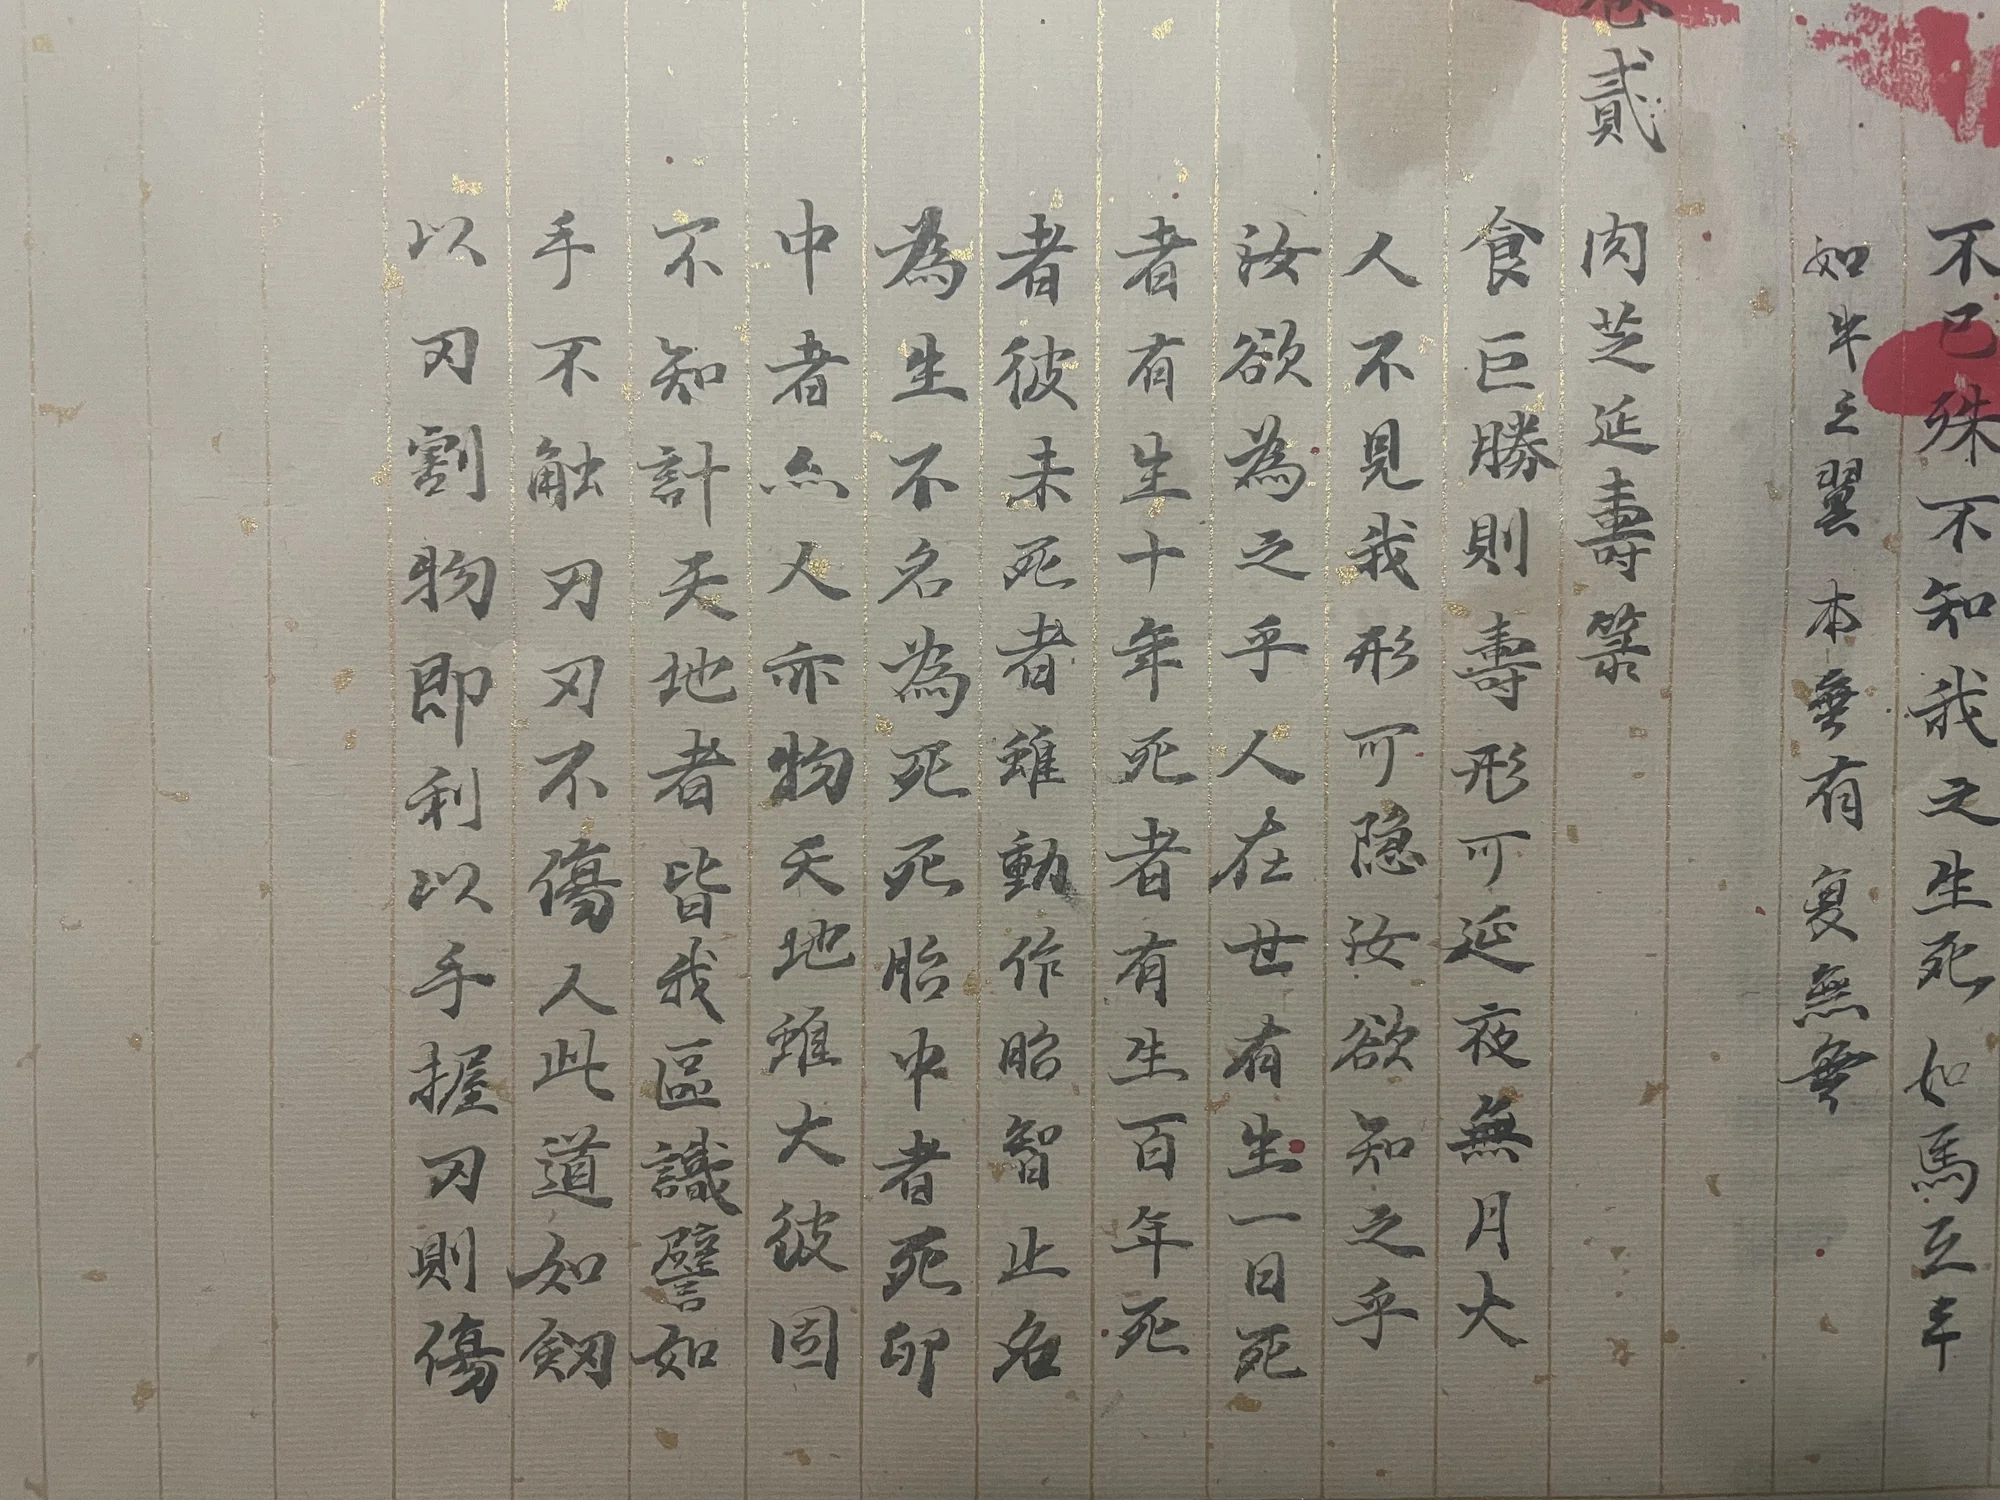 不已殊不知我之生死如馬之手
如牛之翼本無有復無無
卷貳 肉芝延壽箓
食巨勝則壽形可延夜無月火
人不見我形可隐汝欲知之乎
汝欲為之乎人在世有生一日死
者有生十年死者有生百年死
者彼未死者雖動作昭智止名
為生不名為死死胎中者死卵
中者亦人亦物天地雖大彼固
不知計天地者皆我區識譬如
手不触刃刃不傷人此道如劒
以刃割物即利以手握刃則傷